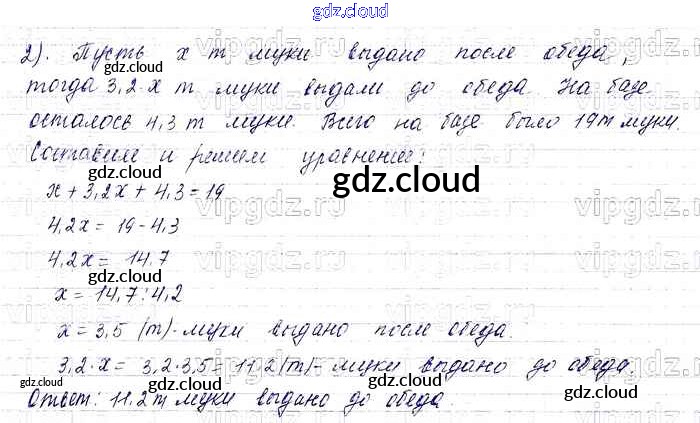 gdz.cloud
2). Пусть x т муки выдано после обеда,
тогда 3,2·x т муки выдали до обеда. На базе
осталось 4,3 т муки. Всего на базе было 19т муки.
Составим и решим уравнение:
x + 3,2x + 4,3 = 19
4,2x = 19 - 4,3
4,2x = 14,7
x = 14,7 : 4,2
x = 3,5 (т) - муки выдано после обеда.
3,2·x = 3,2·3,5 = 11,2 (т) - муки выдано до обеда.
Ответ: 11,2т муки выдано до обеда.
gdz.cloud
gdz.cloud
gdz.cloud
gdz.cloud
gdz.cloud
gdz.cloud
gdz.cloud
gdz.cloud
vipgdz.ru